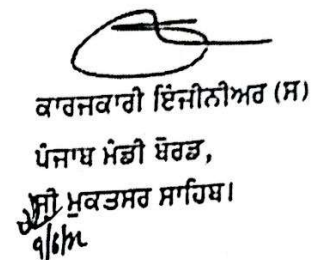 ਕਾਰਜਕਾਰੀ ਇੰਜੀਨੀਅਰ (ਸ)
ਪੰਜਾਬ ਮੰਡੀ ਬੋਰਡ,
ਸ੍ਰੀ ਮੁਕਤਸਰ ਸਾਹਿਬ।